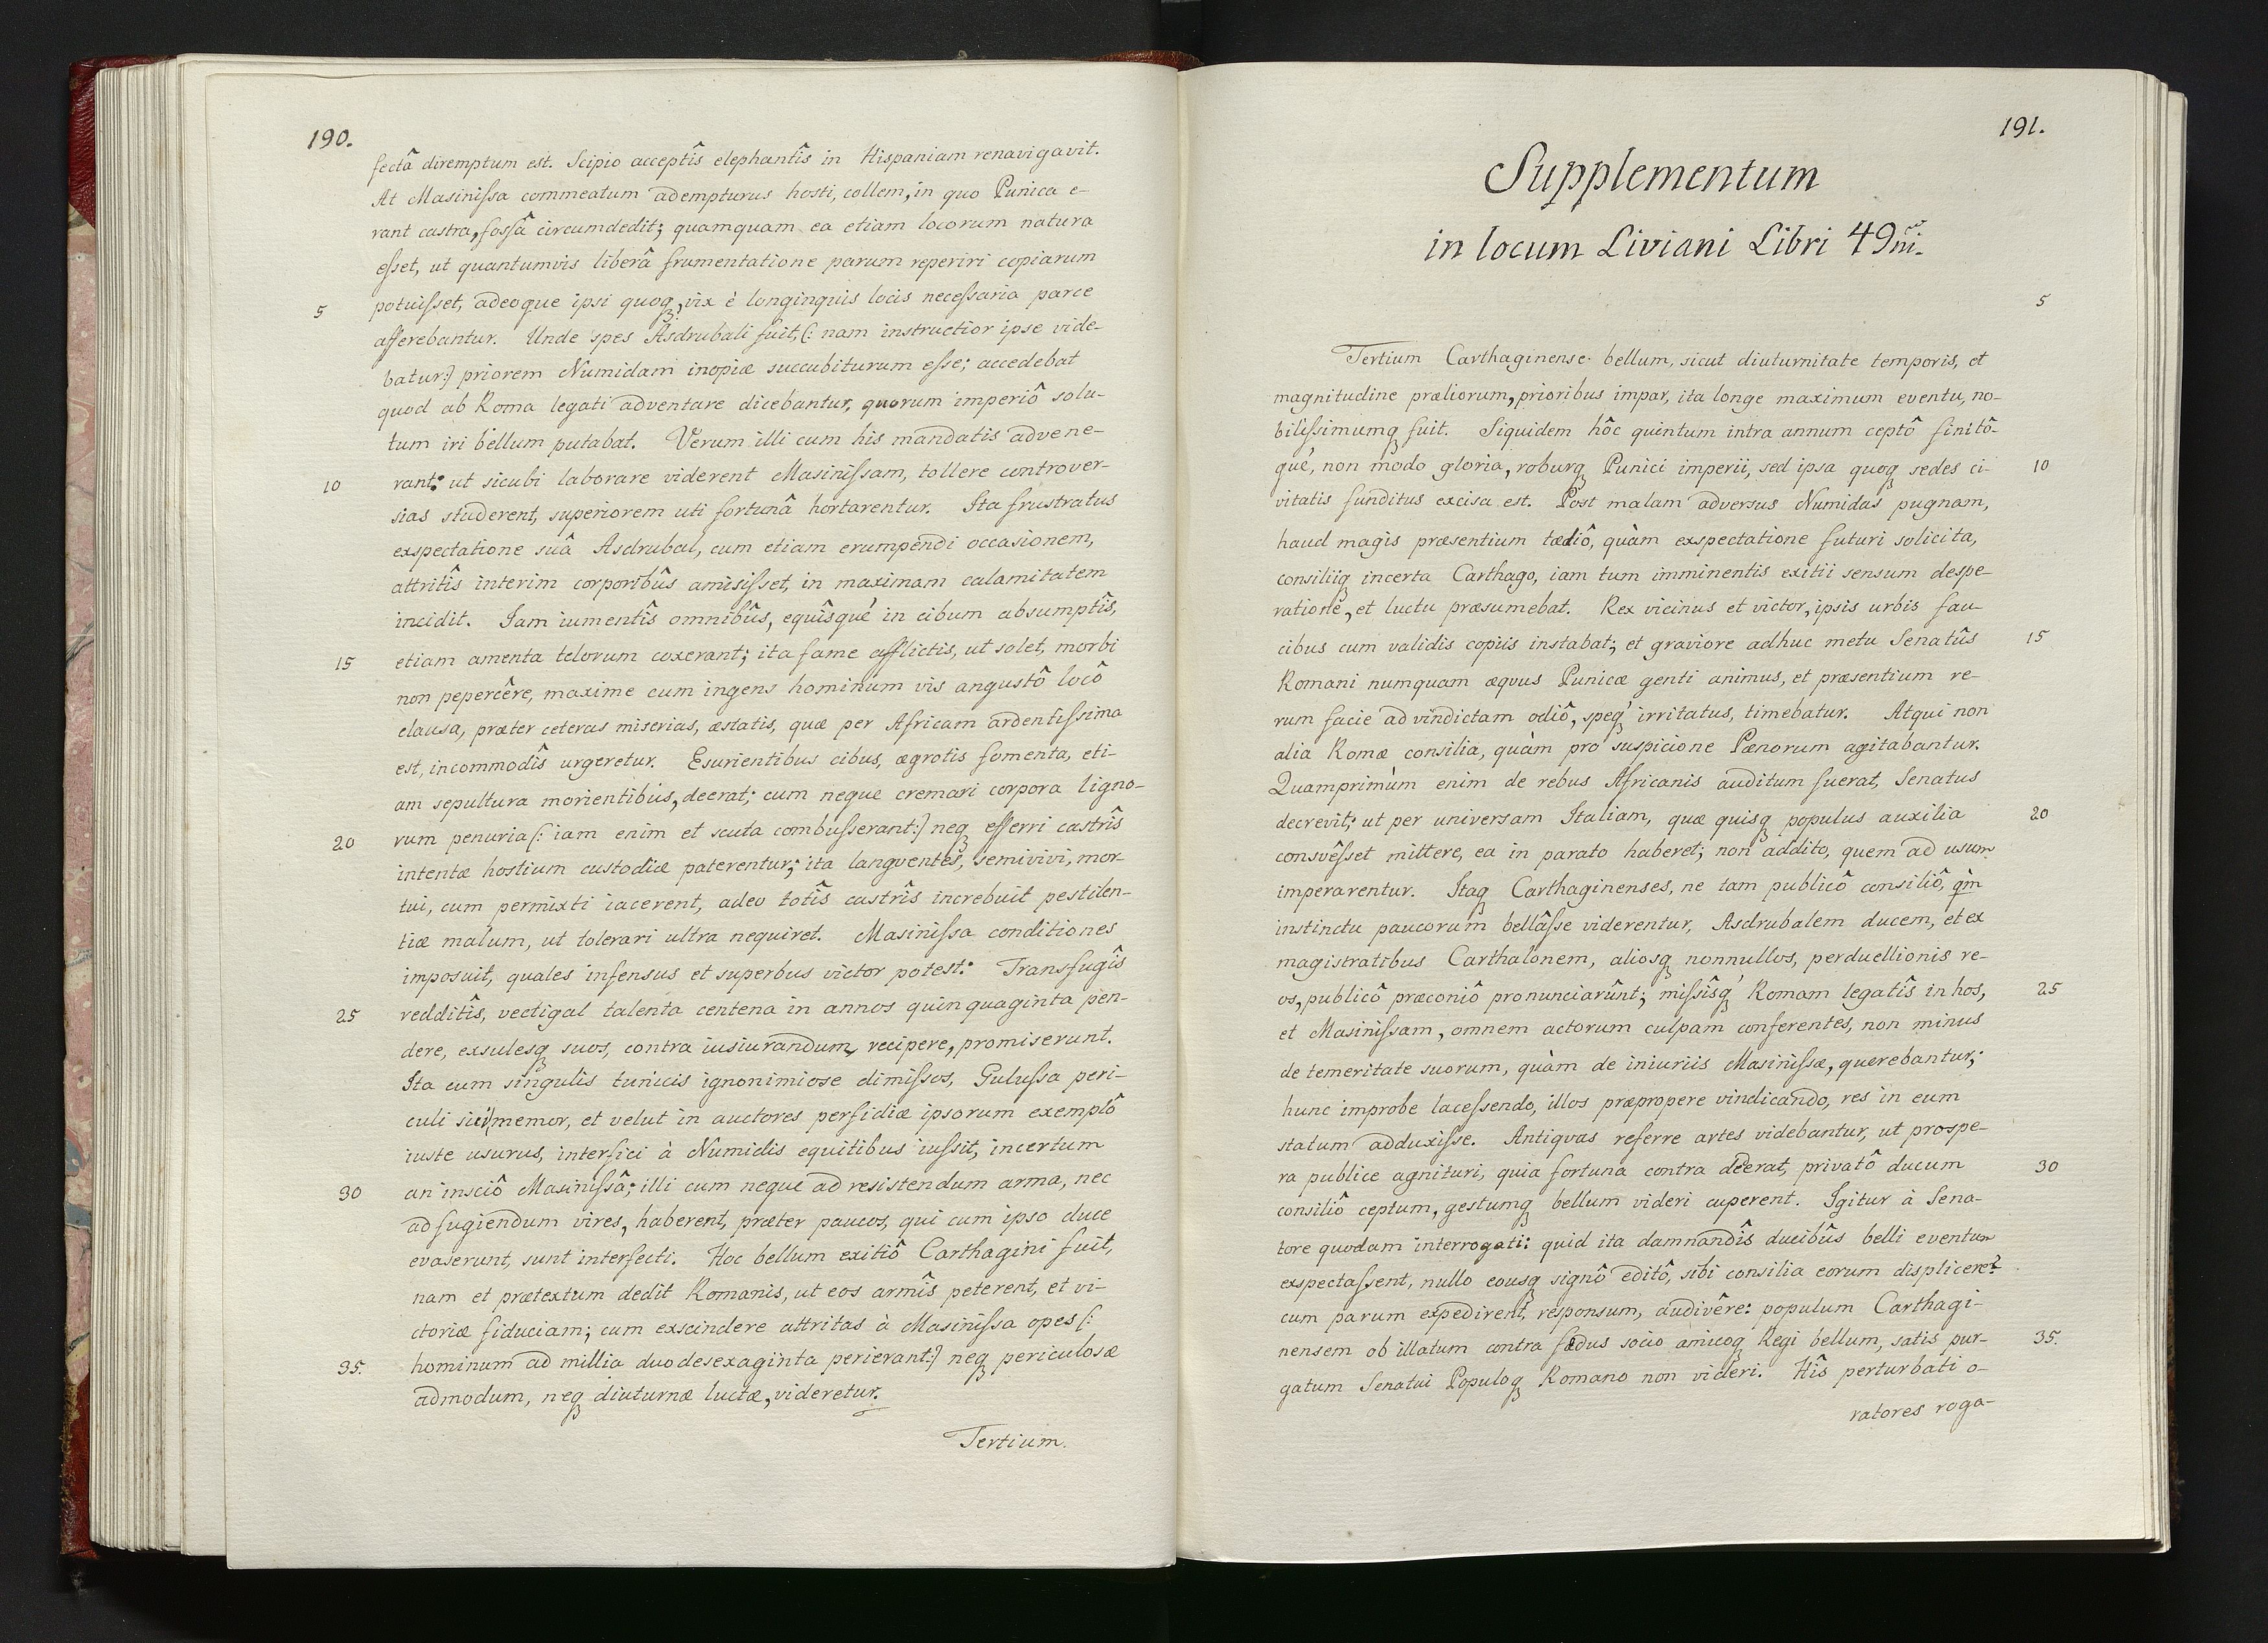 190.
fectâ diremptum est. Scipio acceptîs elephantîs in Hispaniam renavigavit.
At Masinissa commeatum adempturus hosti, collem, in quo Punica e-
rant castra, fossâ circumdedit; quamquam ea etiam locorum natura
esset, ut quantumvis liberâ frumentatione parum reperiri copiarum
5 potuisset, adeoque ipsi quoqꝫ, vix è longinquis locis necessaria parce
afferebantur. Unde spes Asdrubali fuit, (: nam instructior ipse vide-
batur:) priorem Numidam inopiæ succubiturum esse; accedebat
quod ab Roma legati adventare dicebantur, quorum imperiô solu-
tum iri bellum putabat. Verum illi cum his mandatis advene-
10 rant: ut sicubi laborare viderent Masinissam, tollere controver-
sias studerent, superiorem uti fortunâ hortarentur. Ita frustratus
exspectatione suâ Asdrubal, cum etiam erumpendi occasionem,
attritîs interim corporibûs amisisset, in maximam calamitatem
incidit. Iam iumentîs omnibûs, equîsqué in cibum absumptîs,
15 etiam amenta telorum coxerant; ita fame afflictis, ut solet, morbi
non pepercêre, maxime cum ingens hominum vis angustô locô
clausa, præter ceteras miserias, æstatis, quæ per Africam ardentissima
est, incommodîs urgeretur. Esurientibus cibus, ægrotis fomenta, eti-
am sepultura morientibus, deerat; cum neque cremari corpora ligno-
20 rum penuria (: iam enim et scuta combusserant:) neqꝫ efferri castrîs
intentæ hostium custodiæ paterentur; ita langventes, semivivi, mor-
tui, cum permixti iacerent, adeo totîs castrîs increbuit pestilen-
tiæ malum, ut tolerari ultra nequiret. Masinissa conditiones
imposuit, quales infensus et superbus victor potest: Transfugîs
25 redditîs, vectigal talenta centena in annos quinquaginta pen-
dere, exsulesqꝫ suos, contra iusiurandum, recipere, promiserunt.
Ita cum singulis tunicis ignonimiose dimissos, Gulussa peri-
culi sui memor, et velut in auctores perfidiæ ipsorum exemplô
iuste usurus, interfici à Numidis equitibus iussit, incertum
30 an insciô Masinissâ; illi cum neque ad resistendum arma, nec
ad fugiendum vires, haberent, præter paucos, qui cum ipso duce
evaserunt, sunt interfecti. Hoc bellum exitiô Carthagini fuit,
nam et prætextum dedit Romanis, ut eos armîs peterent, et vi-
ctoriæ fiduciam; cum exscindere attritas à Masinissa opes (:
35. hominum ad millia duodesexaginta perierant:) neqꝫ periculosæ
admodum, neqꝫ diuturnæ luctæ, videretur.
Tertium.
191.
Supplementum
in locum Liviani Libri 49ni.
5
Tertium Carthaginense bellum, sicut diuturnitate temporis, et
magnitudine præliorum, prioribus impar, ita longe maximum eventu, no-
bilissimumqꝫ fuit. Siquidem hôc quintum intra annum ceptô finitô-
qué, non modo gloria, roburqꝫ Punici imperii, sed ipsa quoqꝫ sedes ci- 10
vitatis funditus excisa est. Post malam adversus Numidas pugnam,
haud magis præsentium tædiô, quàm exspectatione futuri solicita,
consiliiqꝫ incerta Carthago, iam tum imminentis exitii sensum despe-
ratione, et luctu præsumebat. Rex vicinus et victor, ipsis urbis fau-
cibus cum validis copiis instabat; et graviore adhuc metu Senatûs 15
Romani numquam æqvus Punicæ genti animus, et præsentium re-
rum facie ad vindictam odiô, speqꝫ irritatus, timebatur. Atqui non
alia Romæ consilia, quàm pro suspicione Pænorum agitabantur.
Quamprimùm enim de rebus Africanis auditum fuerat, Senatus
decrevit; ut per universam Italiam, quæ quisqꝫ populus auxilia 20
consvêsset mittere, ea in parato haberet; non addito, quem ad usum
imperarentur. Itaqꝫ Carthaginenses, ne tam publicô consiliô, qm̀
instinctu paucorum bellâsse viderentur, Asdrubalem ducem, et ex
magistratibus Carthalonem, aliosqꝫ nonnullos, perduellionis re-
os, publicô præconiô pronunciarûnt; missîsqꝫ Romam legatîs in hos, 25
et Masinissam, omnem actorum culpam conferentes, non minus
de temeritate suorum, quàm de iniuriis Masinissæ, querebantur;
hunc improbe lacessendo, illos præpropere vindicando, res in eum
statum adduxisse. Antiqvas referre artes videbantur, ut prospe-
ra publice agnituri, quia fortuna contra dederat, privatô ducum 30
consiliô ceptum, gestumqꝫ bellum videri cuperent. Igitur à Sena-
tore quodam interrogati: quid ita damnandîs ducibûs belli eventum
exspectassent, nullo eousqꝫ signô editô, sibi consilia eorum displicere?
cum parum expedirent, responsum, audivêre: populum Carthagi-
nensem ob illatum contra fædus socio amicoqꝫ Regi bellum, satis pur- 35.
gatum Senatui Populoqꝫ Romano non videri. Hîs perturbati o-
ratores roga-